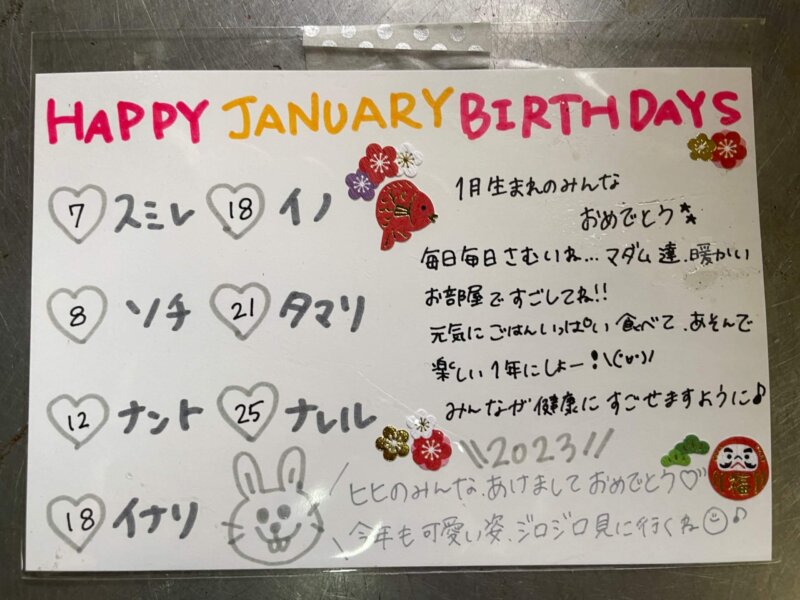 HAPPY JANUARY BIRTHDAYS
7 スミレ 18 イノ
8 ソチ 21 タマリ
12 ナント 25 ナレル
18 イナリ
1月生まれのみんな
おめでとう
毎日毎日さむいね... マダム達、暖かい
お部屋ですごしてね!!
元気にごはんいっぱい食べて、あそんで
楽しい1年にしよー!\(^o^)/
みんなが健康にすごせますように♪
\\2023//
ヒヒのみんな、あけましておめでとう♡
今年も可愛い姿、ジロジロ見に行くね☺♪
福